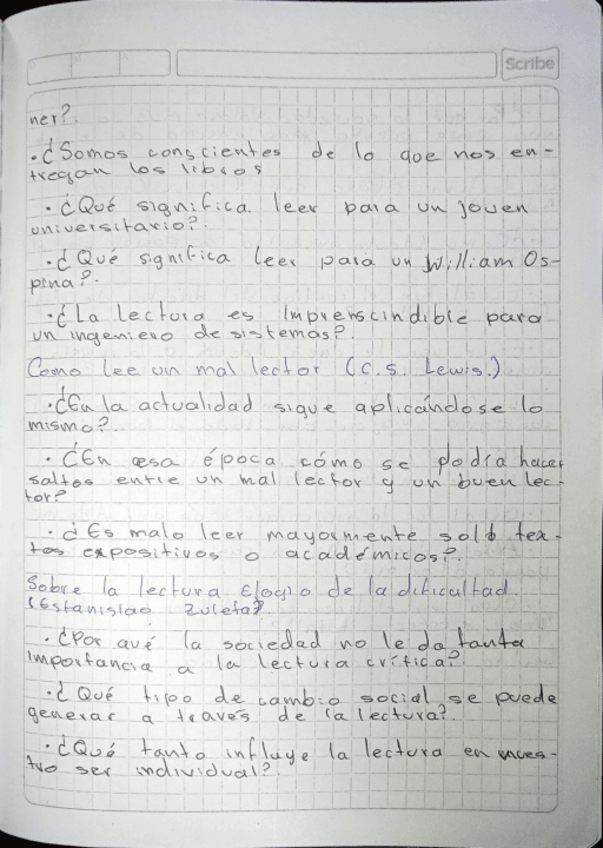 Scribe
ner?.
·¿Somos conscientes de lo que nos en-
tregan los libros
·¿Qué significa leer para un joven
universitario?.
·¿Qué significa leer para un William Os-
pina?.
·¿La lectura es imprenscindible para
un ingeniero de sistemas?.
Como lee un mal lector (C.S. Lewis.)
·¿En la actualidad sigue aplicándose lo
mismo?.
·¿En esa época cómo se podía hacer
saltos entre un mal lector y un buen lec-
tor?
·¿Es malo leer mayormente solo tex-
tos expositivos o académicos?.
Sobre la lectura Elogio de la dificultad.
(Estanislao Zuleta?
·¿Por qué la sociedad no le da tanta
importancia a la lectura crítica?
·¿Qué tipo de cambio social se puede
generar a través de la lectura?.
·¿Qué tanto influye la lectura en nues-
tro ser individual?